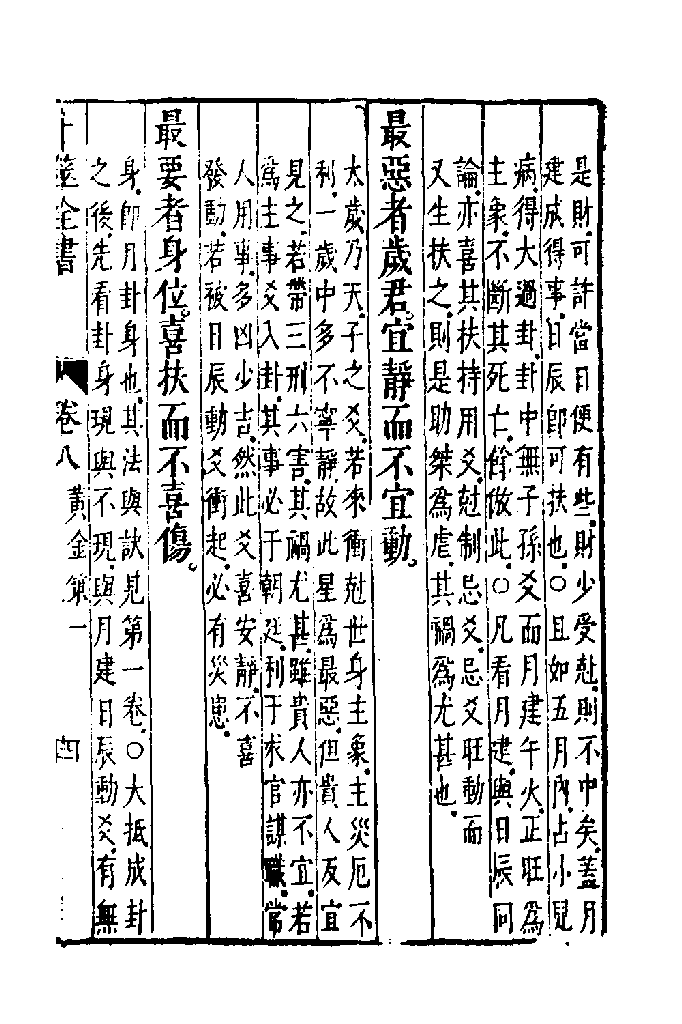 是財可許當日便有些財少受尅則不中矣蓋月
建成得事日辰卽可扶也○且如五月內占小兒
病得大過卦卦中無子孫爻而月建午火正旺爲
主象不斷其死亡餘倣此○凡看月建與日辰同
論亦喜其扶持用爻尅制忌爻忌爻旺動而
又生扶之則是助桀爲虐其禍爲尤甚也
最惡者歲君宜靜而不宜動
太歲乃天子之爻若來衝尅世身主象主災厄不
利一歲中多不寧靜故此星爲最惡但貴人反宜
見之若帶三刑六害其禍尤甚雖貴人亦不宜若
爲主事爻入卦其事必于朝廷利于求官謀職常
人用事多凶少吉然此爻喜安靜不喜
發動若被日辰動爻衝起必有災患
最要者身位喜扶而不喜傷
身卽月卦身也其法與訣見第一卷○大抵成卦
之後先看卦身現與不現與月建日辰動爻有無
卜筮全書
卷八 黃金策一
四